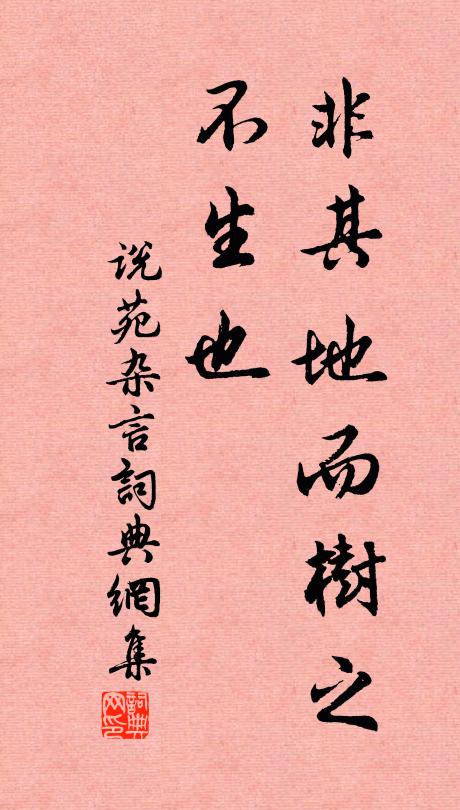 非其地而樹之
不生也
说苑杂言詞典網集
詞典
网印